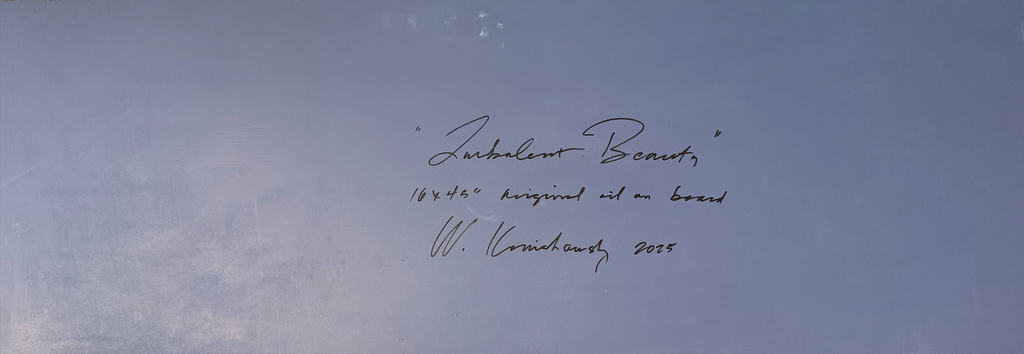 "Turbulent Beauty"
16 x 45" original oil on board
W. 2025